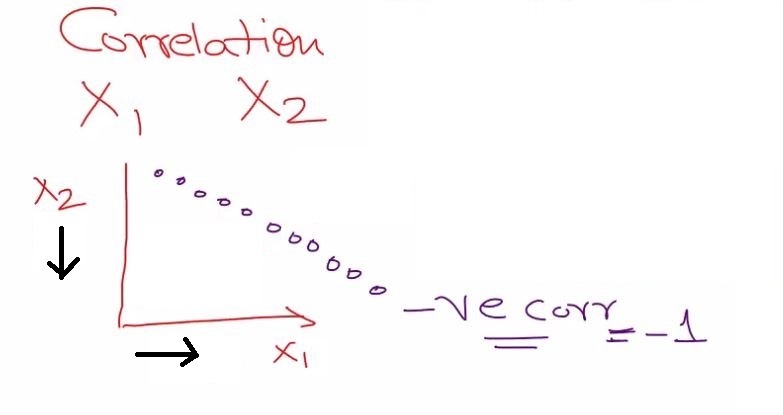 Correlation
X1 X2
X2
-ve corr = -1
X1